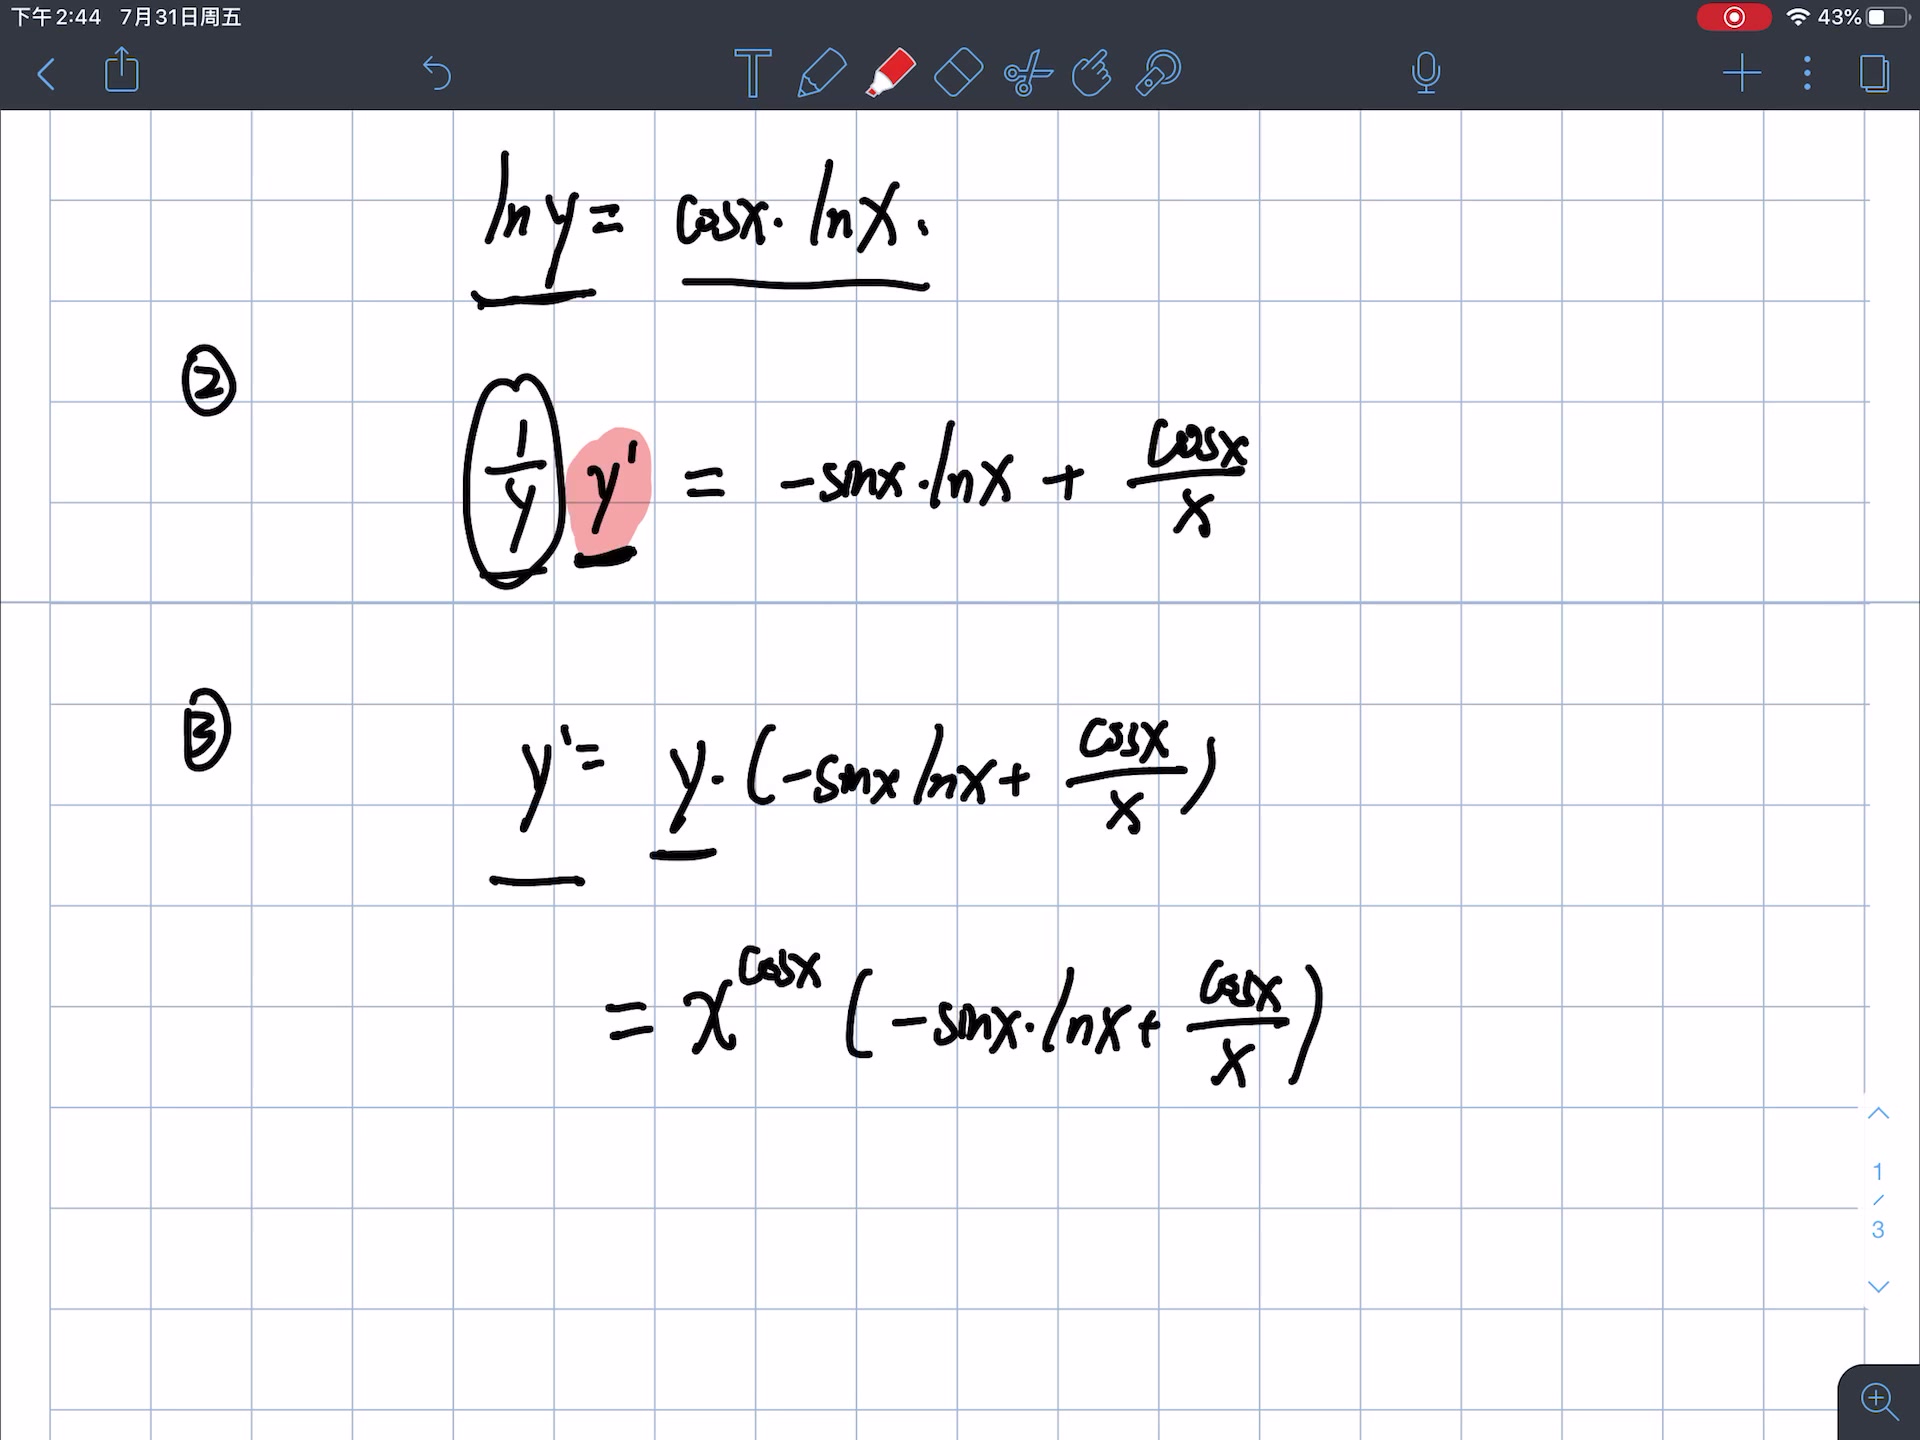 下午2:44 7月31日周五
43%
T
ln y = cosx · lnx .
②
1/y y' = -sinx · lnx + cosx/x
③
y' = y · (-sinx lnx + cosx/x)
= x^cosx (-sinx · lnx + cosx/x)
1
/
3